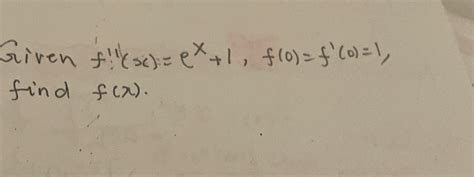 Given f''(x) = e^x + 1, f(0) = f'(0) = 1,
find f(x).